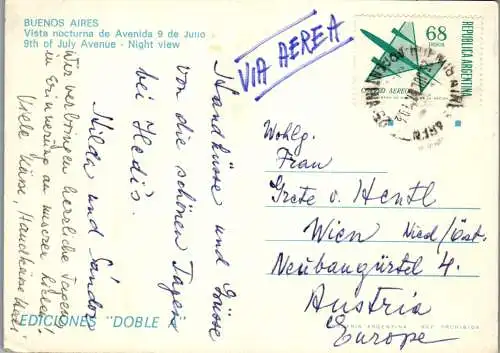 BUENOS AIRES
Vista nocturna de Avenida 9 de Julio
9th of July Avenue - Night view
VIA AEREA
68
PESOS
REPUBLICA ARGENTINA
CORREO AEREO
Handküsse und Grüsse
von die schönen Tagen
bei Hedis.
Hilda und Sándor
Wir verbringen herrliche Tagen
in Erinnerung an unserer
Viele Küsse,
Wohlg.
Frau
Grete v. Hentl
Wien Nied/Öst.
Neubaugürtel 4.
Austria
Europe
EDICIONES "DOBLE
ARGENTINA